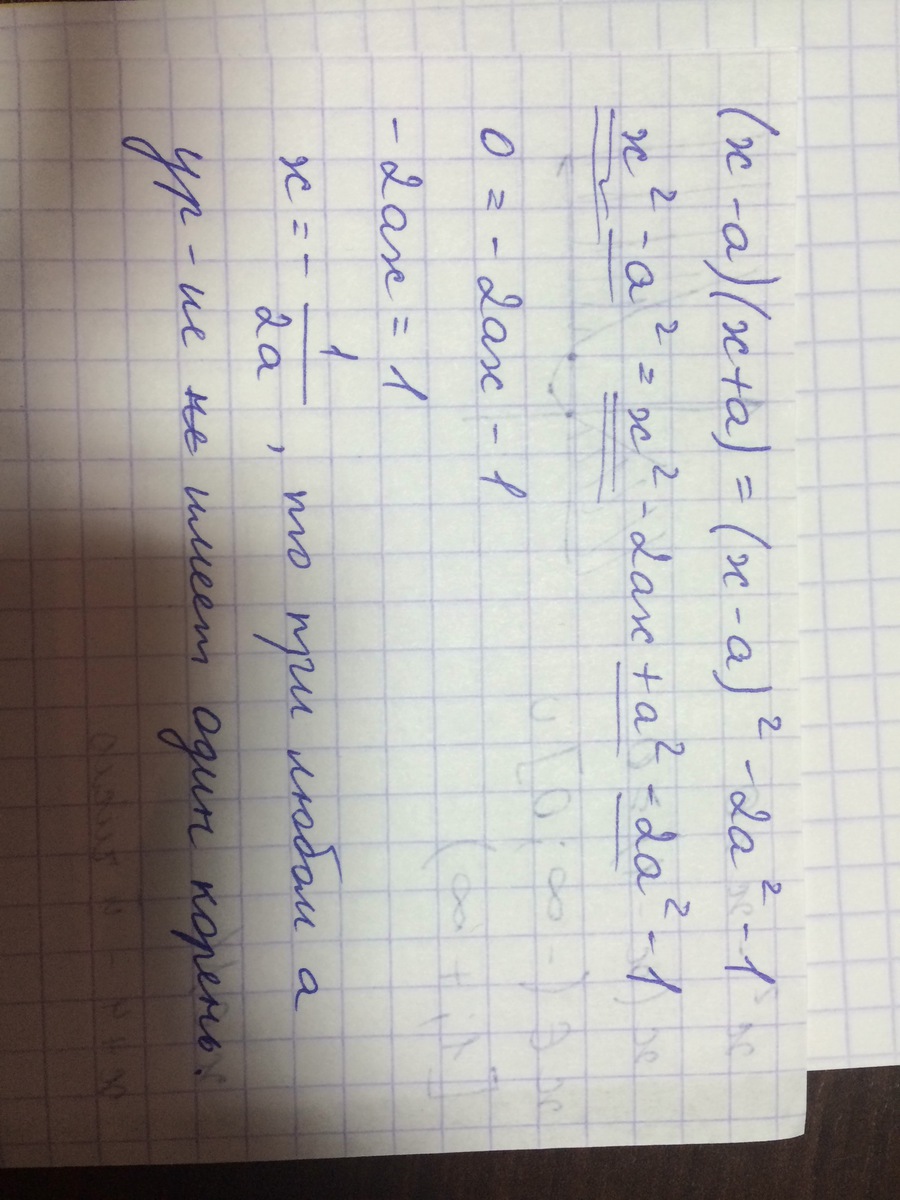 (x-a)(x+a)=(x-a)²-2a²-1
x²-a²=x²-2ax+a²-2a²-1
0=-2ax-1
-2ax=1
x=-1/2a, то при любом a
ур-ие не имеет один корень.